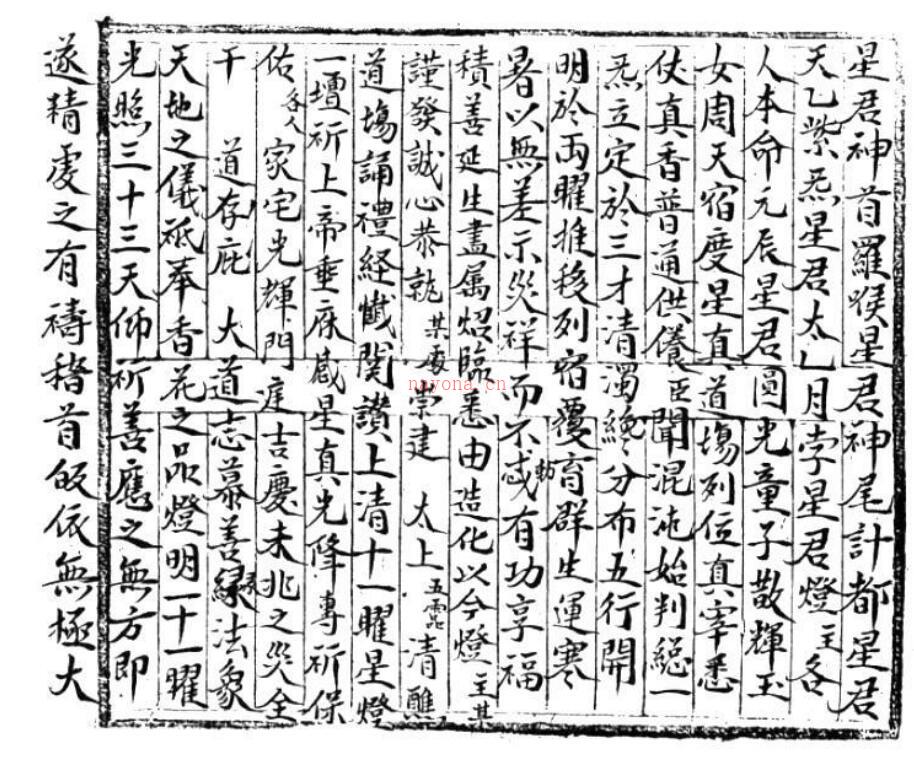 星君神首羅㬋星君神尾計都星君
天乙紫炁星君太乙月孛星君燈主各
人本命元辰星君圓光童子散輝玉
女周天宿度星真道場列位真宰悉
仗真香普通供養臣聞混沌始判總一
炁立定於三才清濁纔分布五行開
明於兩曜推移列宿覆育群生運寒
暑以無差示災祥而不忒有功享福
積善延生盡属炤臨悉由造化以今燈主某
謹發誠心恭就某處崇建 太上五靈清醮
道場誦禮経懺関讃上清十一曜星燈
一壇祈上帝垂庥感星真光降專祈保
佑各人家宅光輝門庭吉慶未兆之災全
干 道存庇 大道志慕善縁法象
天地之儀祇奉香花之品燈明一十一曜
光照三十三天仰祈善應之無方即
遂精虔之有禱稽首皈依無極大
nayona.cn